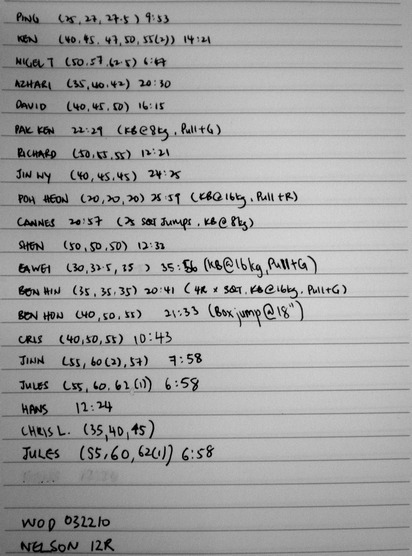 PING (25, 27, 27.5) 9:53
KEN (40, 45, 47, 50, 55(2)) 14:21
NIGEL T (50, 57, 62.5) 6:47
AZHARI (35, 40, 42) 20:30
DAVID (40, 45, 50) 16:15
PAK KEN 22:29 (KB@8kg, Pull+G)
RICHARD (50, 55, 55) 12:21
JINNY (40, 45, 45) 24:25
POH HEON (20, 20, 20) 25:59 (KB@16kg, Pull+R)
CANNES 20:57 (25 SQT Jumps, KB@8kg)
SHEN (50, 50, 50) 12:32
(30, 32.5, 35) 35:56 (KB@16kg, Pull+G)
BEN HIN (35, 35, 35) 20:41 (4R x SQT, KB@16kg, Pull+G)
BEN HON (40, 50, 55) 21:33 (Box jump@18")
CRIS (40, 50, 55) 10:43
JINN (55, 60(2), 57) 7:58
JULES (55, 60, 62(1)) 6:58
HANS 12:24
CHRIS L. (35, 40, 45)
JULES (55, 60, 62(1)) 6:58
WOD 032210
NELSON 12R